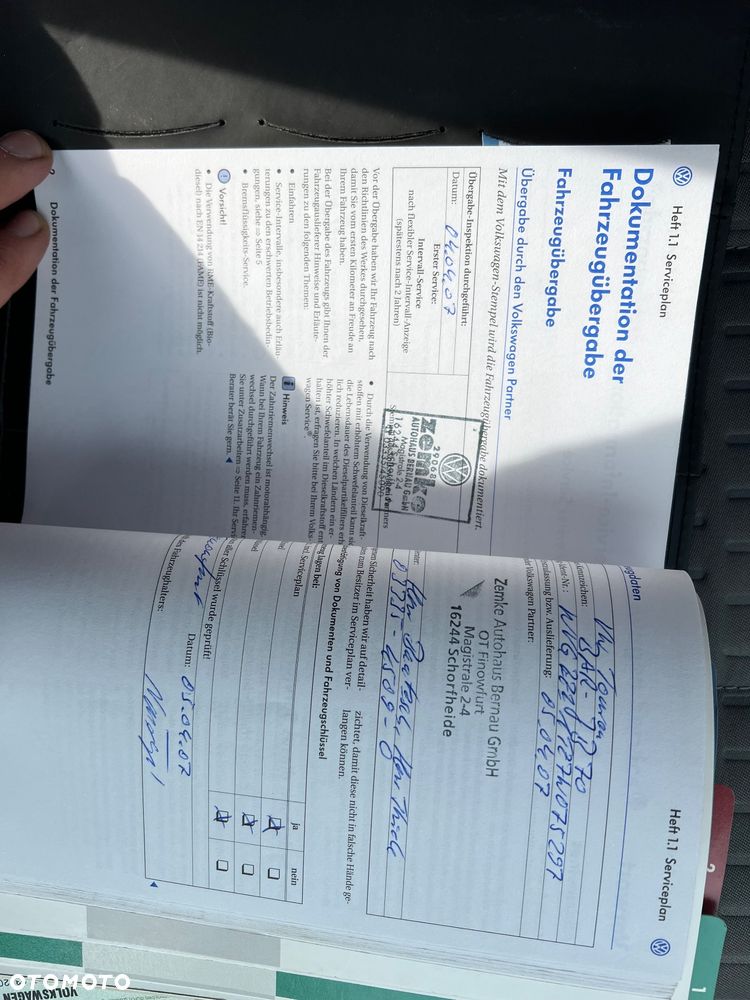 Heft 1.1 Serviceplan
Dokumentation der
Fahrzeugübergabe
Fahrzeugübergabe
Übergabe durch den Volkswagen Partner
Mit dem Volkswagen-Stempel wird die Fahrzeugübergabe dokumentiert.
Übergabe-Inspektion durchgeführt:
Datum: 04.04.07
Erster Service:
Intervall-Service
nach flexibler Service-Intervall-Anzeige
(spätestens nach 2 Jahren)
29068
zemke
AUTOHAUS BERNAU GmbH
Magistrale 2-4
Vor der Übergabe haben wir Ihr Fahrzeug nach
den Richtlinien des Werkes durchgesehen,
damit Sie vom ersten Kilometer an Freude an
Ihrem Fahrzeug haben.
Bei der Übergabe des Fahrzeugs gibt Ihnen der
Fahrzeugauslieferer Hinweise und Erläute-
rungen zu den folgenden Themen:
• Einfahren
• Service-Intervalle, insbesondere auch Erläu-
terungen zu den erschwerten Betriebsbedin-
gungen, siehe ⇒ Seite 5
• Bremsflüssigkeits-Service.
Vorsicht!
• Die Verwendung von RME-Kraftstoff (Bio-
diesel) nach EN 14 214 (FAME) ist nicht möglich.
• Durch die Verwendung von Dieselkraft-
stoffen mit erhöhtem Schwefelanteil kann sich
die Lebensdauer des Dieselpartikelfilters erh
lich reduzieren. In welchen Ländern ein er-
höhter Schwefelanteil im Dieselkraftstoff ent
halten ist, erfragen Sie bitte bei Ihrem Volks-
wagen Service®.
Hinweis
Der Zahnriemenwechsel ist motorabhängig.
Wann bei Ihrem Fahrzeug ein Zahnriemen-
wechsel durchgeführt werden muss, erfahren
Sie unter Zusatzarbeiten ⇒ Seite 11. Ihr Service
Berater berät Sie gern. ◀
2 Dokumentation der Fahrzeugübergabe
Heft 1.1 Serviceplan
ugdaten
Kennzeichen:
VW Touran
BAR-
ident-Nr.:
rstzulassung bzw. Auslieferung: 05.04.07
der Volkswagen Partner:
Zemke Autohaus Bernau GmbH
OT Finowfurt
Magistrale 2-4
16244 Schorfheide
en Sicherheit haben wir auf detail-
ten zum Besitzer im Serviceplan ver-
zichtet, damit diese nicht in falsche Hände ge-
langen können.
von Dokumenten und Fahrzeugschlüssel
lagen bei:
ja nein
Serviceplan
er Schlüssel wurde geprüft!
Datum: 05.04.07
Fahrzeughalters:
2
1
VOLKSWAGEN
OTOMOTO